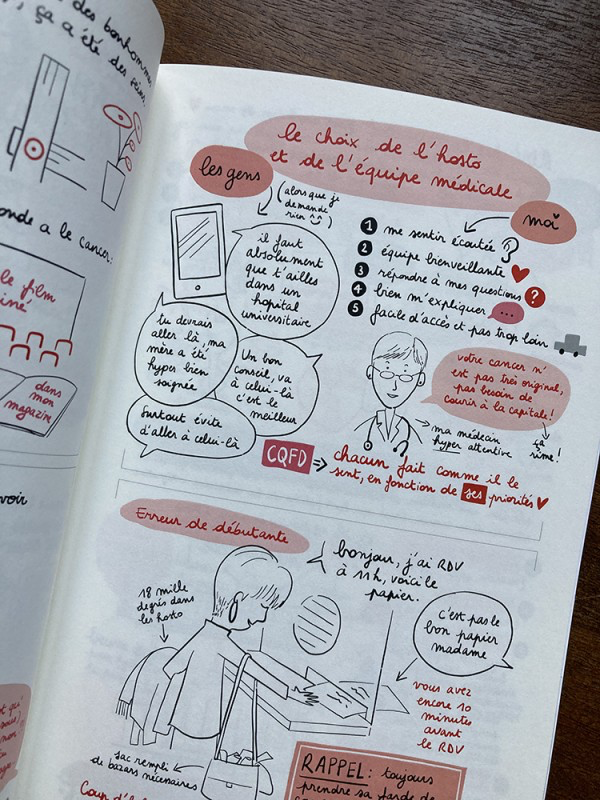 des bonhommes
, ça a été des
onde a le cancer:
le film
dans
mon
magazine
voir
le choix de l'hosto
et de l'équipe médicale
les gens
(alors que je
demande
rien)
moi
1 me sentir écoutée
2 équipe bienveillante
3 répondre à mes questions ?
4 bien m'expliquer ...
5 facile d'accès et pas trop loin
il faut
absolument
que t'ailles
dans un
hopital
universitaire
tu devrais
aller là, ma
mère a été
hyper bien
soignée
Un bon
conseil, va
à celui-là
c'est le
meilleur
Surtout évite
d'aller à celui-là
votre cancer n'
est pas très original,
pas besoin de
courir à la capitale!
ça
rime!
ma médecin
hyper attentive
CQFD
chacun fait comme il le
sent, en fonction de ses priorités
Erreur de débutante
bonjour, j'ai RDV
à 11h, voici le
papier.
18 mille
degrés dans
les hosto
c'est pas le
bon papier
madame
vous avez
encore 10
minutes
avant
le RDV
sac rempli
de bazars nécessaires
RAPPEL: toujours
prendre sa farde de
Coup d'